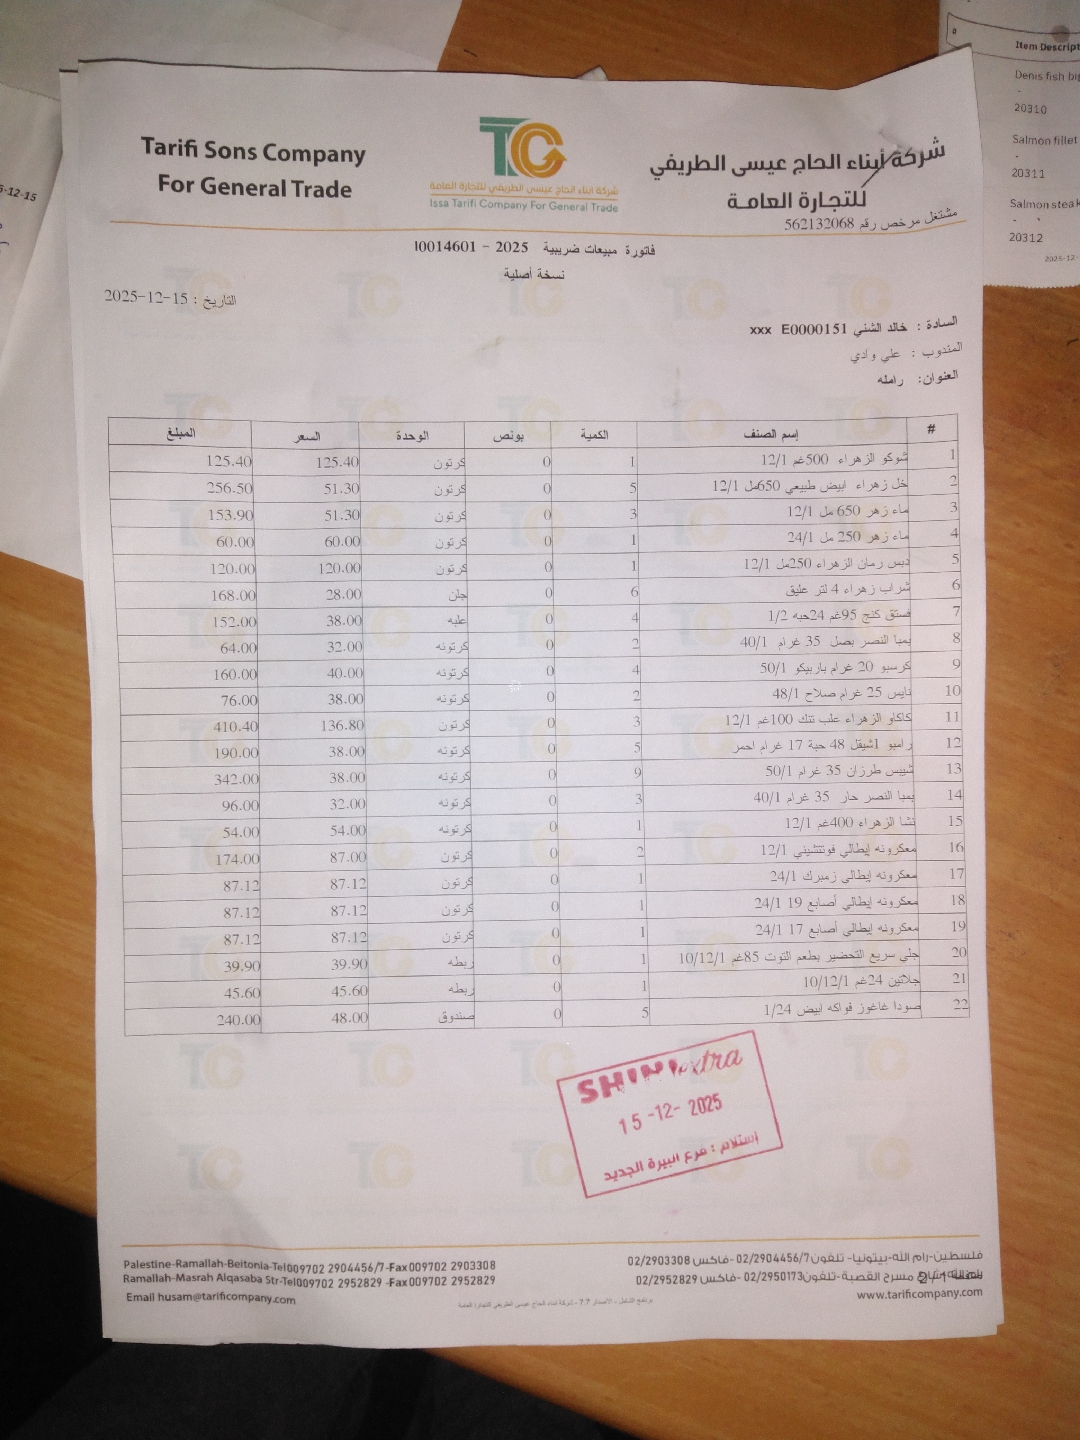 Tarifi Sons Company
For General Trade
TC
شركة ابناء الحاج عيسى الطريفي للتجارة العامة
Issa Tarifi Company For General Trade
شركة أبناء الحاج عيسى الطريفي
للتجارة العامة
مشتغل مرخص رقم 562132068
فاتورة مبيعات ضريبية 2025 - I0014601
نسخة أصلية
التاريخ : 2025-12-15
السادة : خالد الشني xxx E0000151
المندوب : علي وادي
العنوان: رامله
# إسم الصنف الكمية بونص الوحدة السعر المبلغ
1 شوكو الزهراء 500غم 12/1 1 0 كرتون 125.40 125.40
2 خل زهراء ابيض طبيعي 650مل 12/1 5 0 كرتون 51.30 256.50
3 ماء زهر 650 مل 12/1 3 0 كرتون 51.30 153.90
4 ماء زهر 250 مل 24/1 1 0 كرتون 60.00 60.00
5 دبس رمان الزهراء 250مل 12/1 1 0 كرتون 120.00 120.00
6 شراب زهراء 4 لتر عليق 6 0 جلن 28.00 168.00
7 فستق كنج 95غم 24حبه 1/2 4 0 علبه 38.00 152.00
8 بمبا النصر بصل 35 غرام 40/1 2 0 كرتونه 32.00 64.00
9 كرسبو 20 غرام باربيكو 50/1 4 0 كرتونه 40.00 160.00
10 تايس 25 غرام صلاح 48/1 2 0 كرتونه 38.00 76.00
11 كاكاو الزهراء علب تنك 100غم 12/1 3 0 كرتون 136.80 410.40
12 رامبو اشيقل 48 حبة 17 غرام احمر 5 0 كرتونه 38.00 190.00
13 شيبس طرزان 35 غرام 50/1 9 0 كرتونه 38.00 342.00
14 بمبا النصر حار 35 غرام 40/1 3 0 كرتونه 32.00 96.00
15 نشا الزهراء 400غم 12/1 1 0 كرتونه 54.00 54.00
16 معكرونه إيطالي فوتتشيني 12/1 2 0 كرتون 87.00 174.00
17 معكرونه إيطالي زمبرك 24/1 1 0 كرتون 87.12 87.12
18 معكرونه إيطالي أصابع 19 24/1 1 0 كرتون 87.12 87.12
19 معكرونه إيطالي أصابع 17 24/1 1 0 كرتون 87.12 87.12
20 جلي سريع التحضير بطعم التوت 85غم 10/12/1 1 0 ربطه 39.90 39.90
21 جلاتين 24غم 10/12/1 1 0 ربطه 45.60 45.60
22 صودا غاغوز فواكه ابيض 1/24 5 0 صندوق 48.00 240.00
SHINI extra
15-12-2025
إستلام : فرع البيرة الجديد
Palestine-Ramallah-Beitonia-Tel009702 2904456/7-Fax009702 2903308
Ramallah-Masrah Alqasaba Str-Tel009702 2952829 -Fax009702 2952829
Email husam@tarificompany.com
فلسطين-رام الله-بيتونيا- تلفون02/2904456/7 -فاكس 02/2903308
مسرح القصبة-تلفون02/2950173 -فاكس 02/2952829
www.tarificompany.com
برنامج الشامل - الاصدار 7.7 - شركة ابناء الحاج عيسى الطريفي للتجارة العامة
Item Descript
Denis fish big
-
20310
Salmon fillet
-
20311
Salmon steak
-
20312
2025-12-
5-12-15